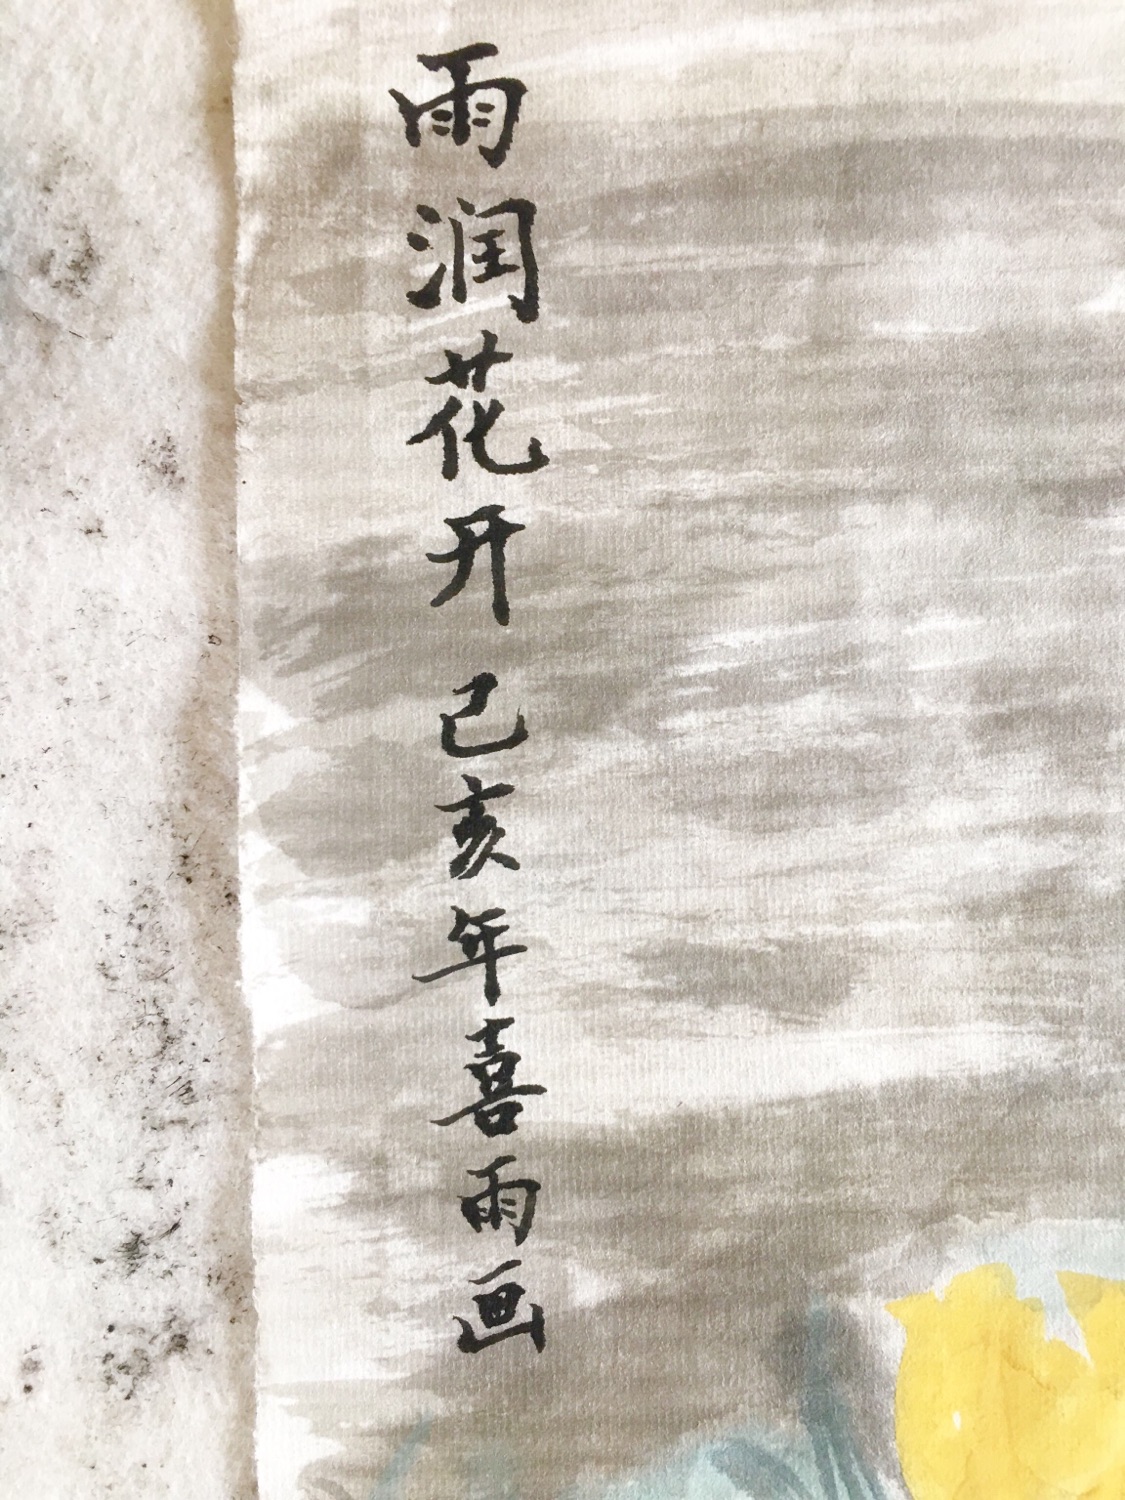 雨润花开 己亥年喜雨画